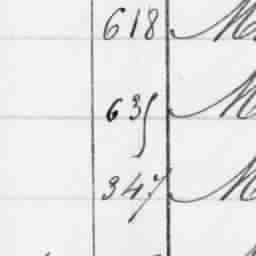 618 M
635 M
347 M